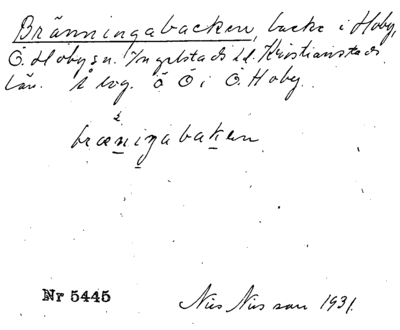 Bränningabacken, backe i Hoby,
Ö. Hoby sn. Ingelstads hd. Kristianstads
län. L vog. Ö Ö i Ö. Hoby.
brænigabaken
Nr 5445
Nils Nilsson 1931.